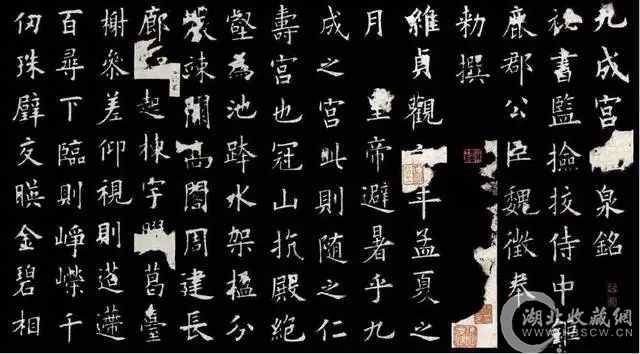 九成宮泉銘
秘書監撿挍侍中
鹿郡公臣魏徵奉
勑撰
維貞觀年孟夏之
月 皇帝避暑乎九
成之宮此則隨之仁
壽宮也冠山抗殿絕
壑為池跨水架楹分
巖竦闕高閣周建長
廊起棟宇膠葛臺
榭參差仰視則迢遰
百尋下臨則崢嶸千
仞珠璧交暎金碧相
湖北收藏網